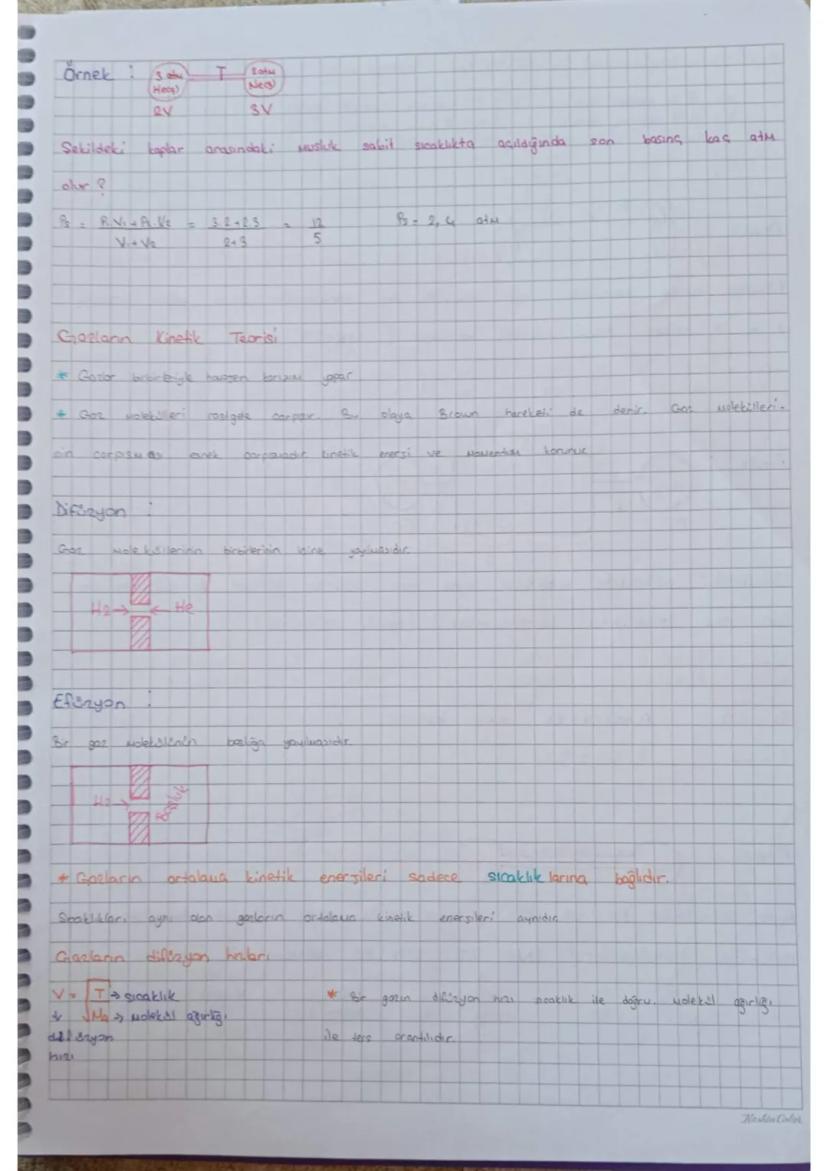 Örnek :
3 atm T 2 atm
He(g) Ne(g)
2V 3V
Şekildeki kaplar arasındaki musluk sabit sıcaklıkta açıldığında son basınç kaç atm
olur ?
Ps = P1.V1+P2.V2 = 3.2+2.3 = 12 Ps = 2,4 atm
V1+V2 2+3 5
Gazların Kinetik Teorisi
* Gazlar birbirleriyle homojen karışım yapar
* Gaz molekülleri rastgele çarpar. Bu olaya Brown hareketi de denir. Gaz molekülleri-
nin çarpışması esnek çarpışmadır kinetik enerji ve momentum korunur
Difüzyon :
Gaz moleküllerinin birbirlerinin içine yayılmasıdır
H2→ ← He
Efüzyon :
Bir gaz molekülünün boşluğa yayılmasıdır
H2→ Boşluk
* Gazların ortalama kinetik enerjileri sadece sıcaklıklarına bağlıdır.
Sıcaklıkları aynı olan gazların ortalama kinetik enerjileri aynıdır
Gazların difüzyon hızları
V = √T → sıcaklık * Bir gazın difüzyon hızı sıcaklık ile doğru, molekül ağırlığı
↓ √Ma → molekül ağırlığı
difüzyon ile ters orantılıdır.
hızı